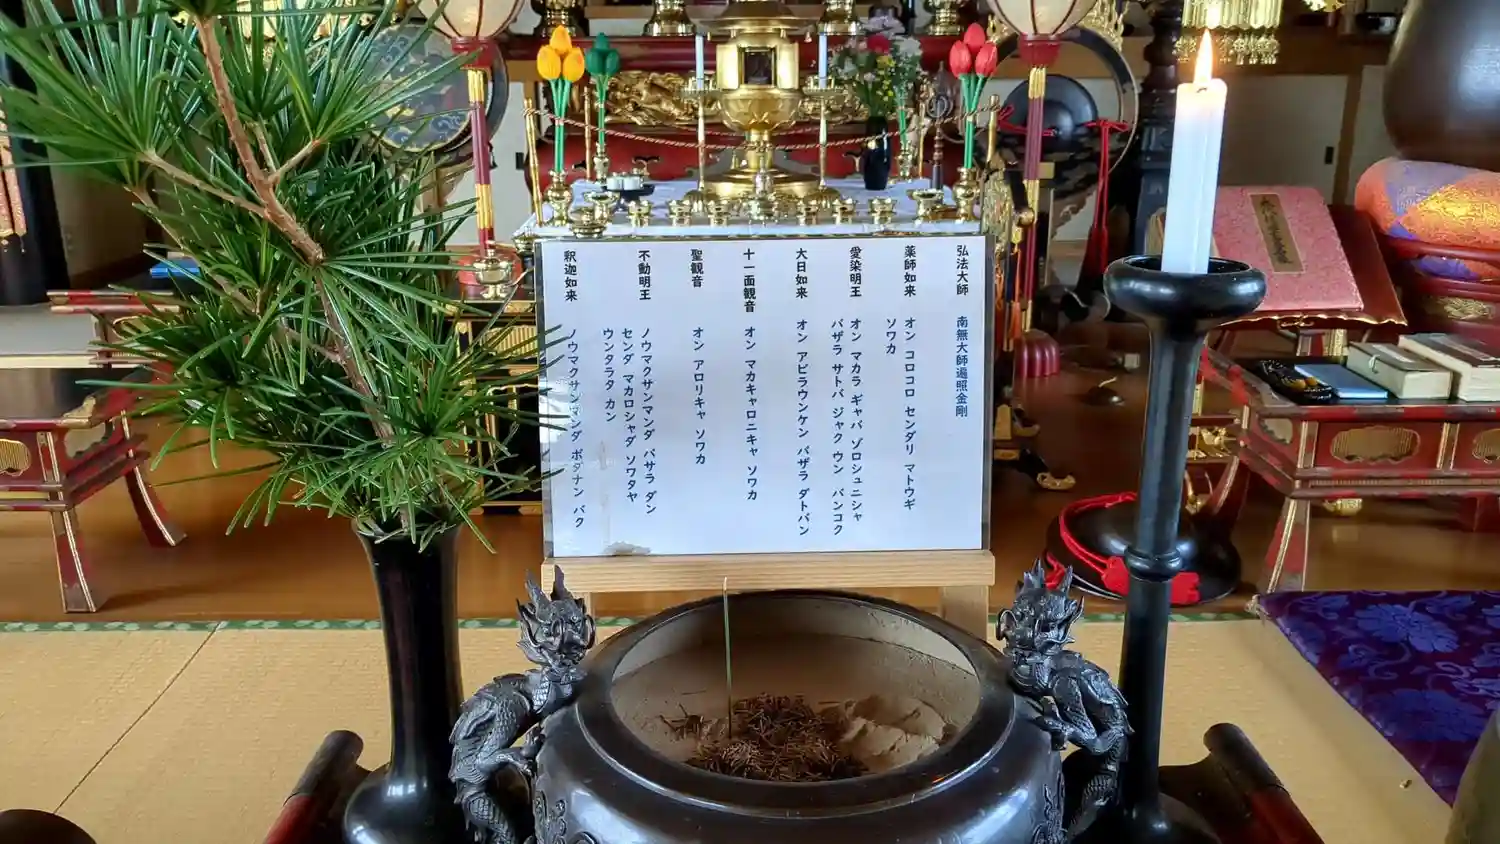 弘法大師 南無大師遍照金剛
薬師如来 オン コロコロ センダリ マトウギ
ソワカ
愛染明王 オン マカラ ギャバ ゾロシュニシャ
バザラ サトバ ジャク ウン バンコク
大日如来 オン アビラウンケン バザラ ダトバン
十一面観音 オン マカキャロニキャ ソワカ
聖観音 オン アロリキャ ソワカ
不動明王 ノウマクサンマンダ バサラ ダン
センダ マカロシャダ ソワタヤ
ウンタラタ カン
釈迦如来 ノウマクサンマンダ ボダナン バク